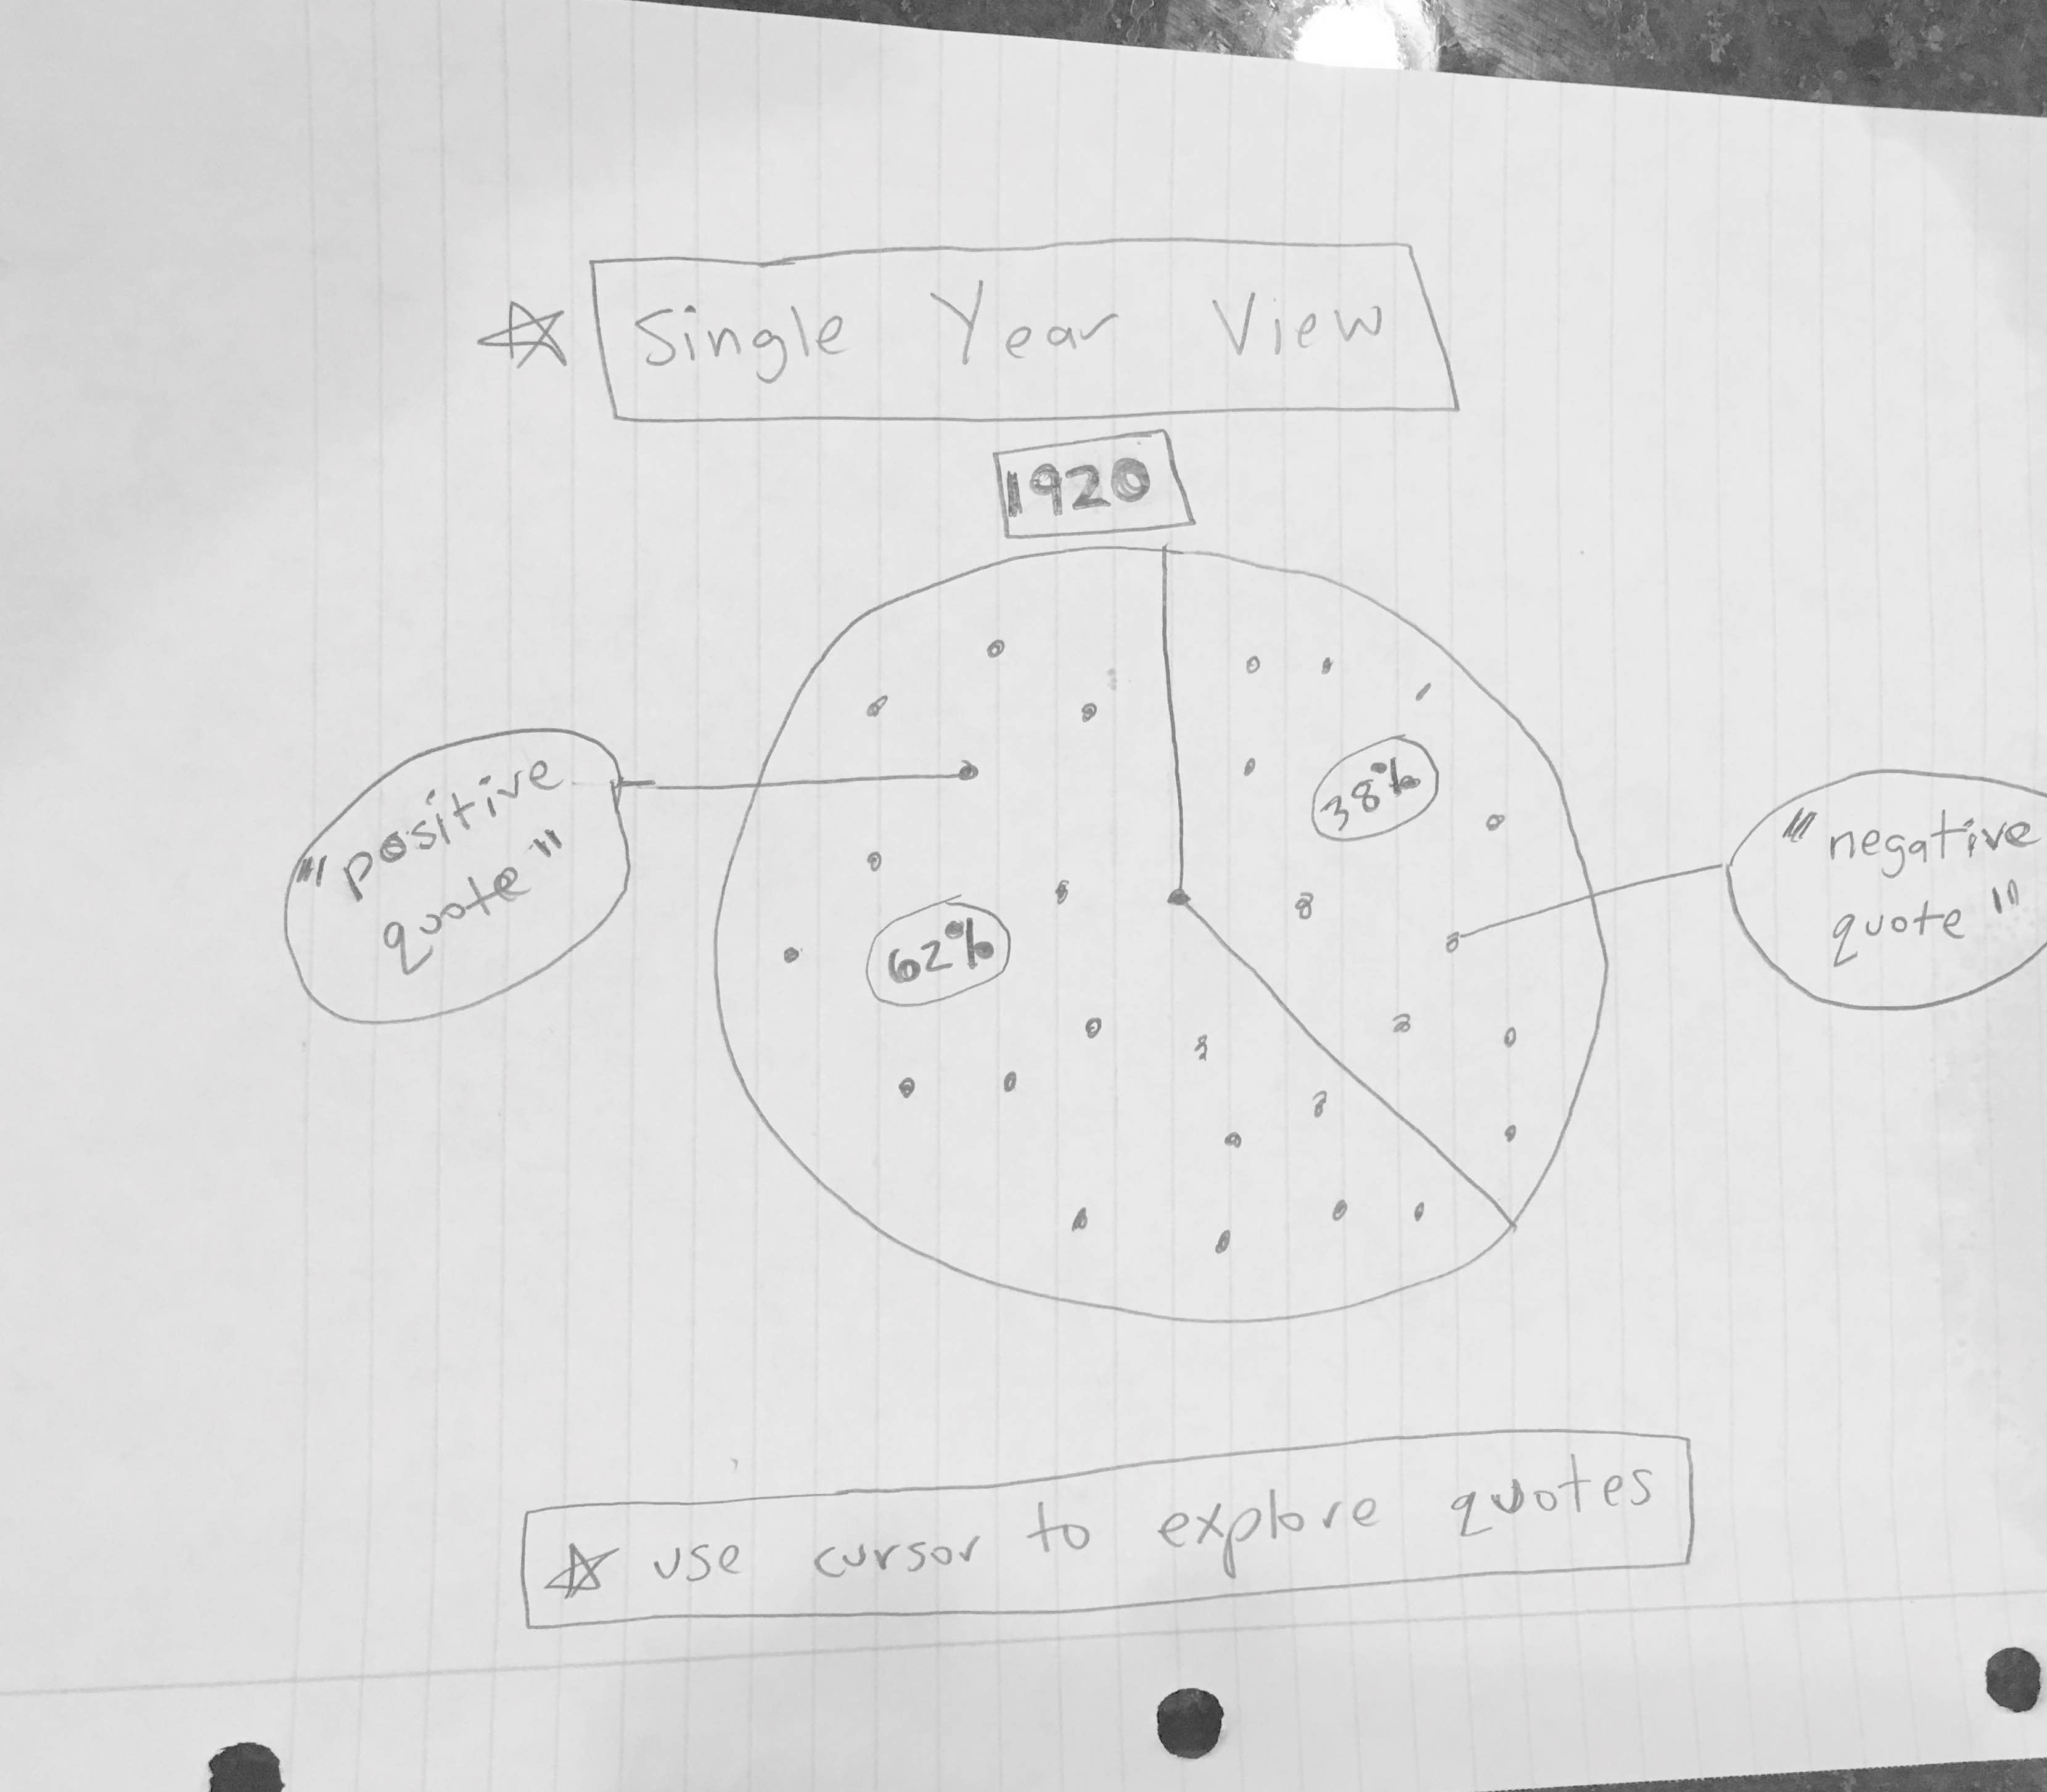 Single Year View
1920
38%
"positive
quote"
"negative
quote"
62%
use cursor to explore quotes